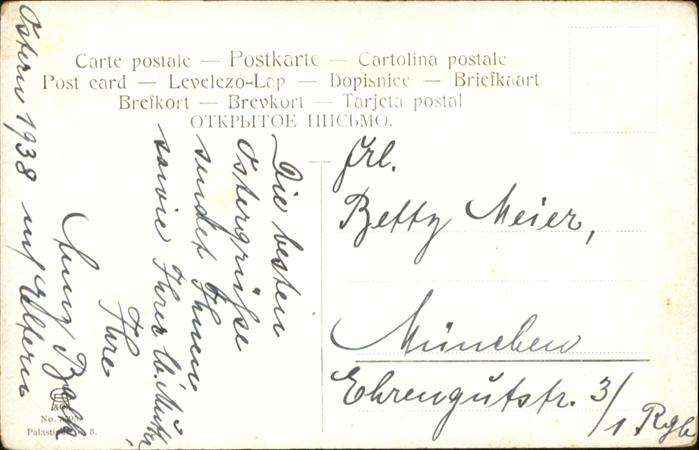 Carte postale — Postkarte — Cartolina postale
Post card — Levelező-Lap — Dopisnice — Briefkaart
Brefkort — Brevkort — Tarjeta postal
ОТКРЫТОЕ ПИСЬМО.
Frl.
Betty Meier,
München
Ehrengutstr. 3/
1 Rgb
Die besten
Ostergrüße
sendet Ihnen
sowie Ihrer lb. Mutter,
Ihre
Ostern 1938
Eltern
No.
8.